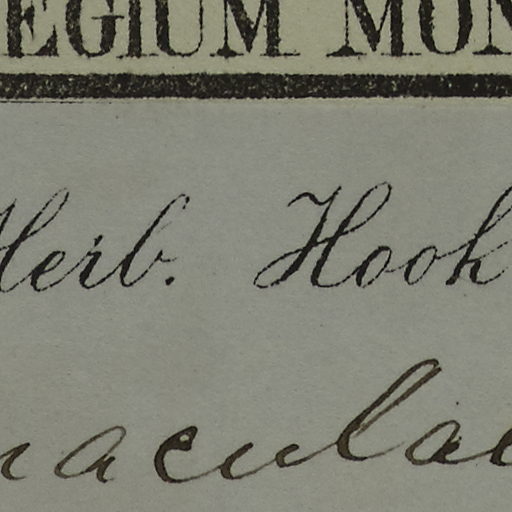 EGIUM MON
Herb. Hook
maculae